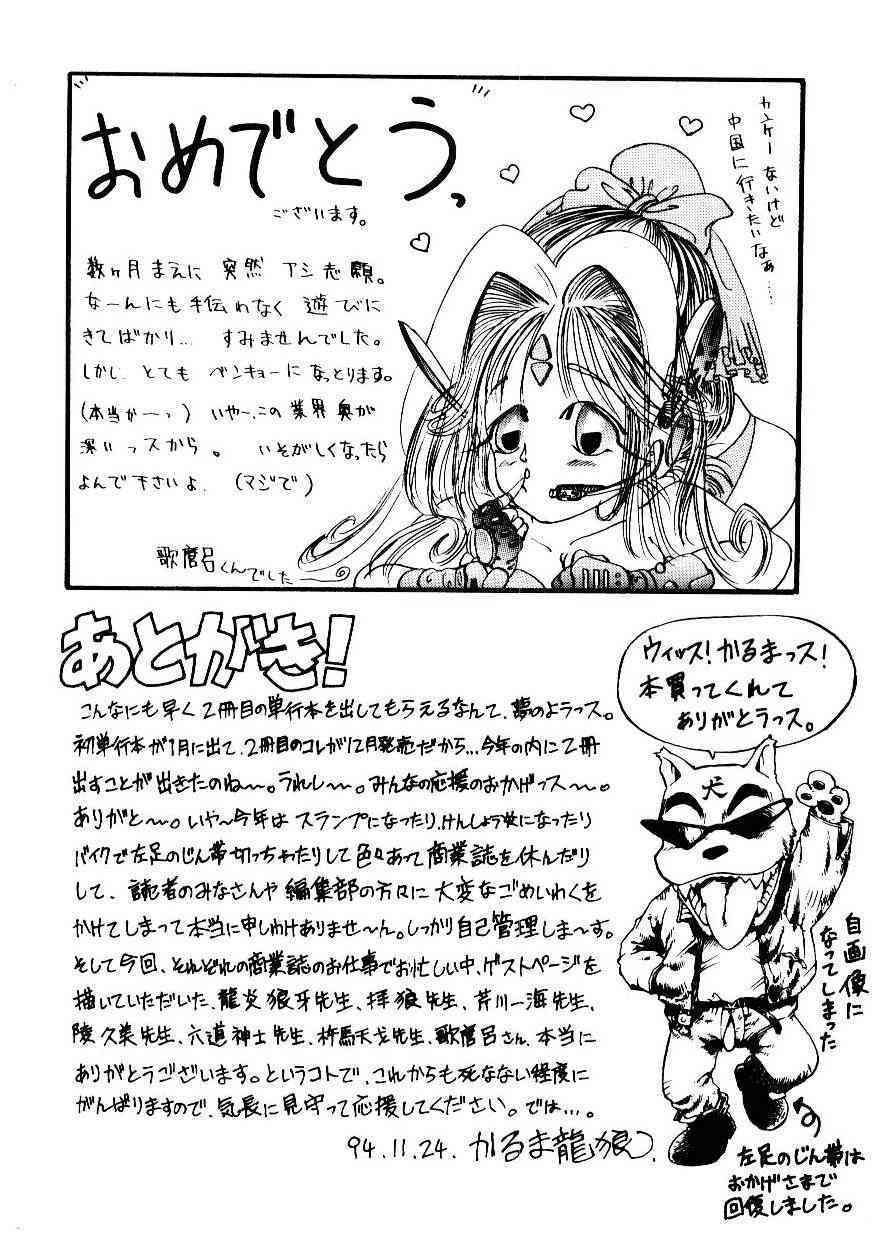 おめでとうっ
ございます。
カンケーないけど
中国に行きたいなぁ…
数ヶ月まえに 突然 アシ志願。
なーんにも手伝わなく 遊びに
きてばかり… すみませんでした。
しかし とても ベンキョーになっとります。
(本当かーっ) いやー、この業界奥が
深いっスから。 いそがしくなったら
よんで下さいよ。 (マジで)
歌麿呂くんでした
あとがき!
こんなにも早く2冊目の単行本を出してもらえるなんて、夢のようっス。
初単行本が1月に出て、2冊目のコレが12月発売だから…今年の内に2冊
出すことが出きたのね〜。うれし〜。みんなの応援のおかげっス〜。
ありがと〜。いや〜今年は スランプになったり、けんしょう炎になったり
バイクで左足のじん帯切っちゃたりして色々あって商業誌を休んだり
して、読者のみなさんや 編集部の方々に 大変なごめいわくを
かけてしまって本当に申しわけありませ〜ん。しっかり自己管理しま〜す。
そして今回、それぞれの商業誌のお仕事でお忙しい中、ゲストページを
描いていただいた、龍炎狼牙先生、拝狼先生、芹川一海先生、
陵久美先生、六道神士先生、杵馬天戈先生、歌麿呂さん、本当に
ありがとうございます。というコトで、これからも死なない程度に
がんばりますので、気長に見守って応援してください。では…。
94.11.24. かるま龍狼
ウィッス!かるまっス!
本買ってくれて
ありがとうっス。
犬
自画像に
なってしまった
左足のじん帯は
おかげさまで
回復しました。